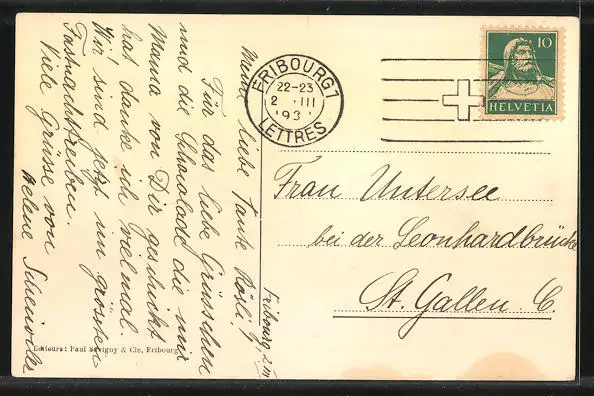 Fribourg, 2. III
Meine liebe Tante Rösli!
Für das liebe Grüsschen
und die Schocolade die mir
Mama von Dir geschickt
hat danke ich vielmal.
Wir sind jetzt im grössten
Fastnachttreiben.
Viele Grüsse von
Helene
Editeurs: Paul Savigny & Cie, Fribourg
FRIBOURG 1
22-23
2. III
193
LETTRES
10
HELVETIA
Frau Untersee
bei der Leonhardbrücke
St. Gallen C.